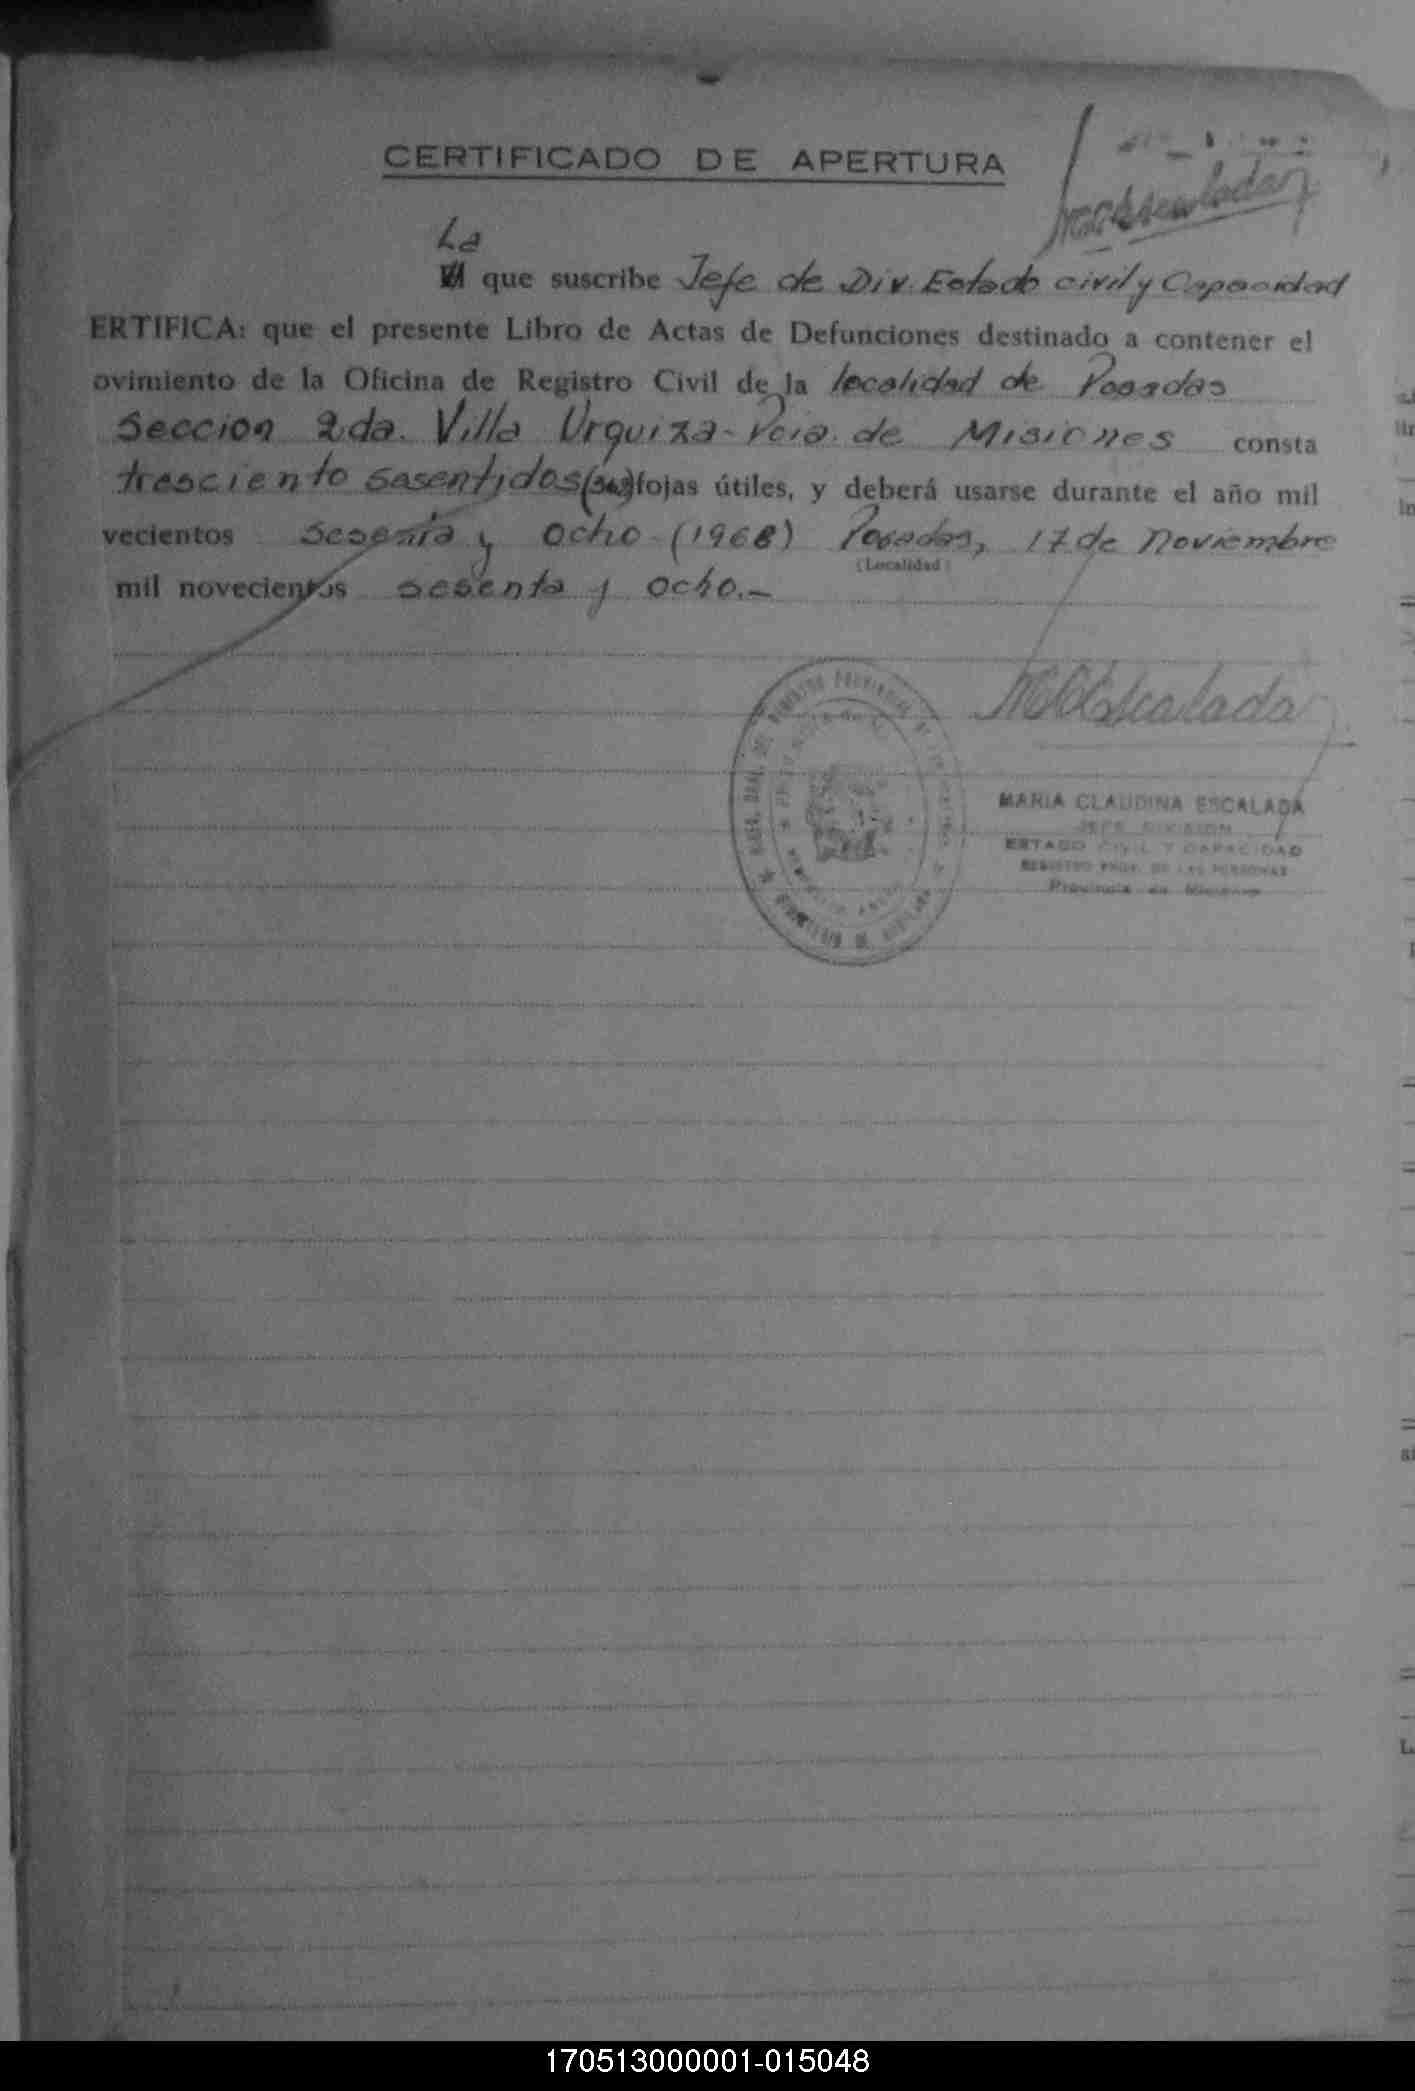 CERTIFICADO DE APERTURA
MCEscalada
La
El que suscribe Jefe de Div. Estado civil y Capacidad
ERTIFICA: que el presente Libro de Actas de Defunciones destinado a contener el
ovimiento de la Oficina de Registro Civil de la localidad de Posadas
Seccion 2da. Villa Urquiza - Pcia. de Misiones consta
tresciento sasentidos (362) fojas útiles, y deberá usarse durante el año mil
vecientos sesenta y ocho (1968) Posadas, 17 de Noviembre
(Localidad)
mil novecientos sesenta y ocho.-
MCEscalada
MARIA CLAUDINA ESCALADA
JEFE DIVISION
ESTADO CIVIL Y CAPACIDAD
REGISTRO PROV. DE LAS PERSONAS
Provincia de Misiones
170513000001-015048